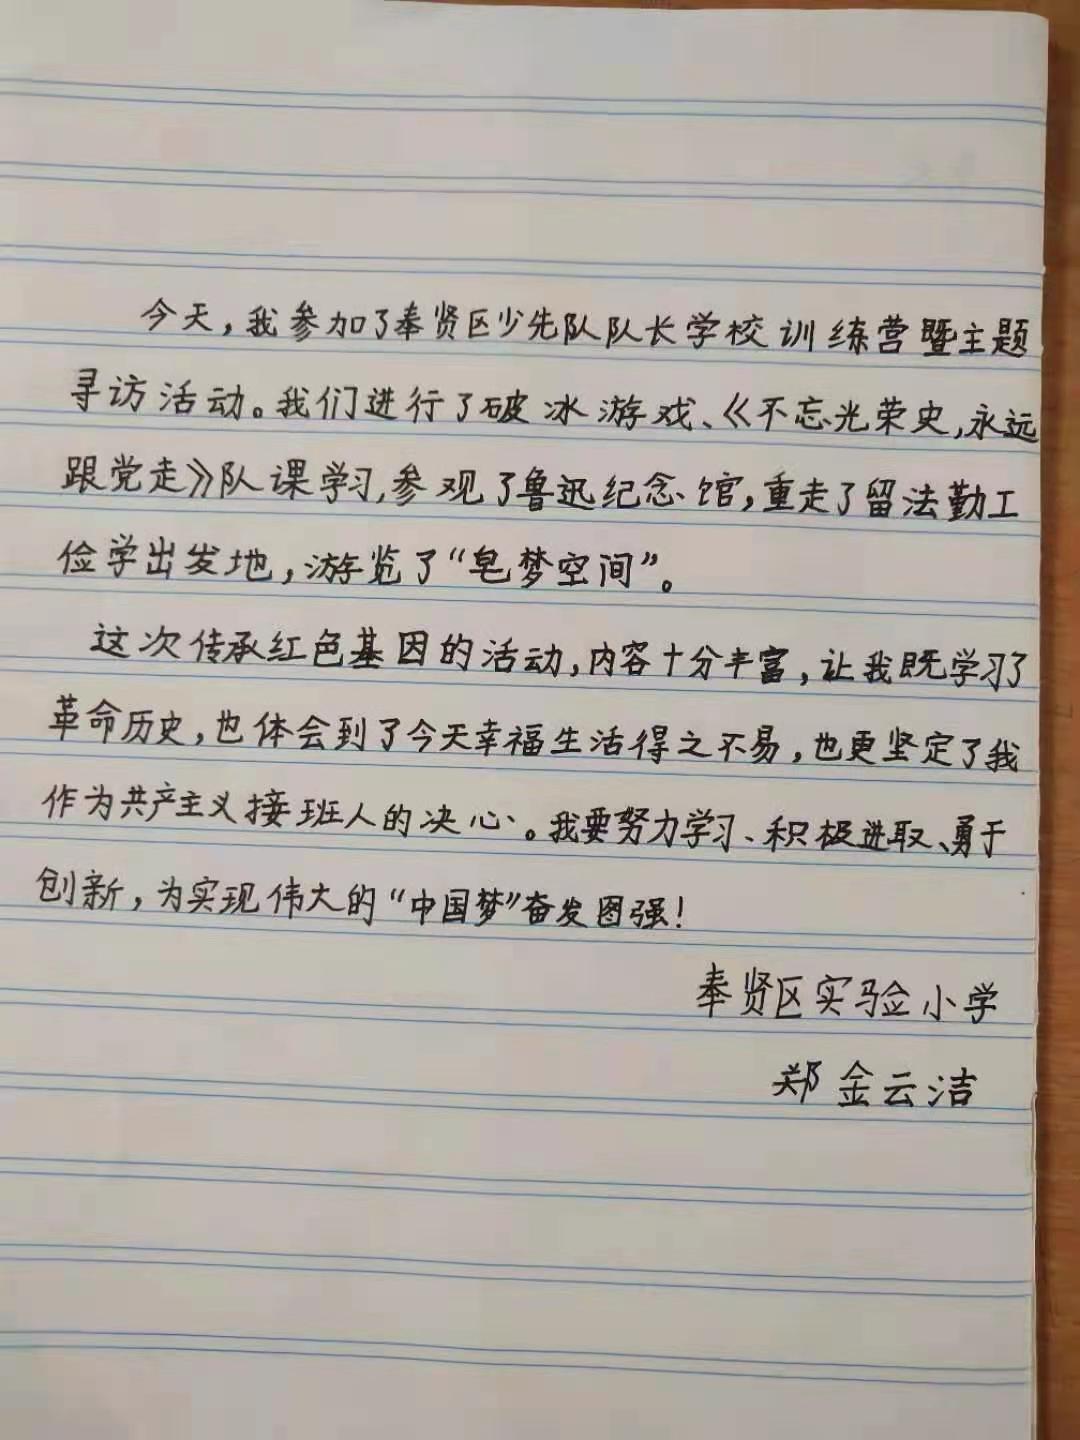 今天，我参加了奉贤区少先队队长学校训练营暨主题
寻访活动。我们进行了破冰游戏、《不忘光荣史,永远
跟党走》队课学习,参观了鲁迅纪念馆,重走了留法勤工
俭学出发地,游览了“皂梦空间”。
这次传承红色基因的活动,内容十分丰富,让我既学习了
革命历史,也体会到了今天幸福生活得之不易,也更坚定了我
作为共产主义接班人的决心。我要努力学习、积极进取、勇于
创新,为实现伟大的“中国梦”奋发图强!
奉贤区实验小学
郑金云洁